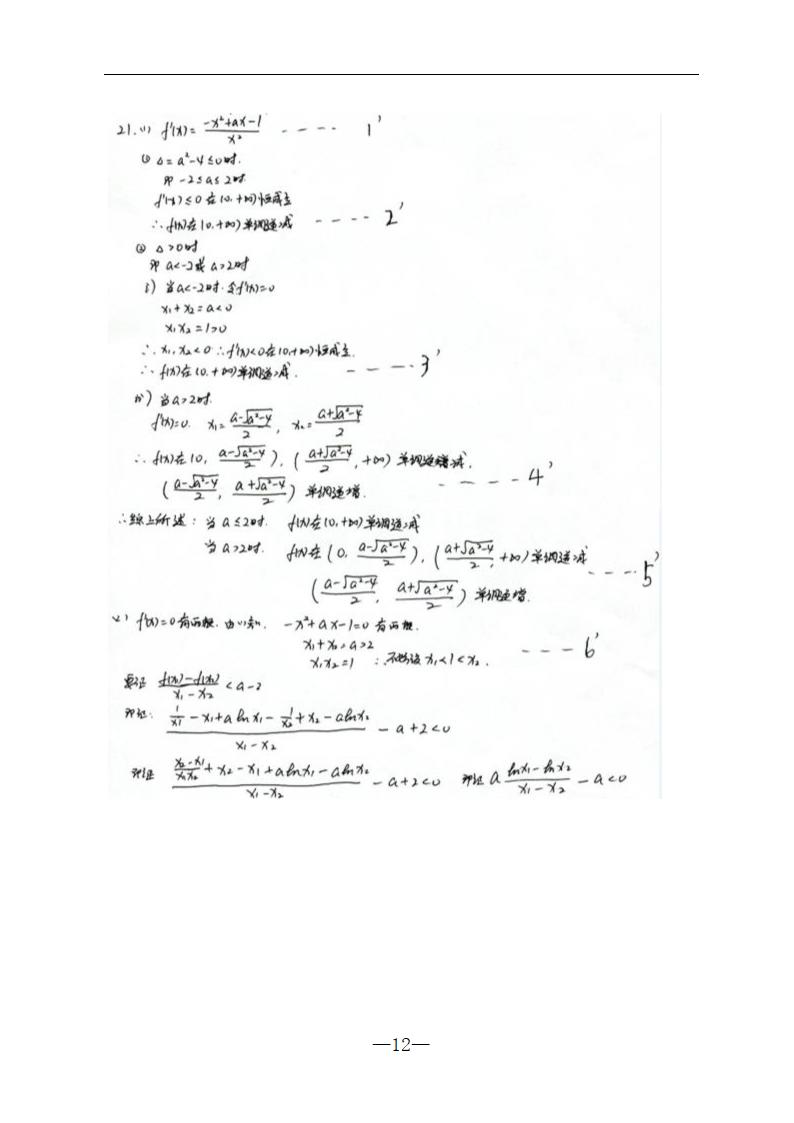 21.(1) f'(x)= (-x²+ax-1)/x² ---- 1'
① Δ=a²-4≤0时.
即 -2≤a≤2时.
f'(x)≤0在(0,+∞)恒成立
∴f(x)在(0,+∞)单调递减 ---- 2'
② Δ>0时
即 a<-2或a>2时
i) 当a<-2时.令f'(x)=0
x₁+x₂=a<0
x₁x₂=1>0
∴x₁,x₂<0 ∴f'(x)<0在(0,+∞)恒成立.
∴f(x)在(0,+∞)单调递减. ---- 3'
ii) 当a>2时.
f'(x)=0. x₁=(a-√(a²-4))/2, x₂=(a+√(a²-4))/2
∴f(x)在(0, (a-√(a²-4))/2), ((a+√(a²-4))/2, +∞) 单调递减.
((a-√(a²-4))/2, (a+√(a²-4))/2) 单调递增. ---- 4'
∴综上所述: 当a≤2时. f(x)在(0,+∞)单调递减
当a>2时. f(x)在(0, (a-√(a²-4))/2), ((a+√(a²-4))/2, +∞)单调递减
((a-√(a²-4))/2, (a+√(a²-4))/2) 单调递增. ---- 5'
2) f'(x)=0有两根.由(1)知. -x²+ax-1=0有两根.
x₁+x₂=a>2
x₁x₂=1 ∴不妨设x₁<1<x₂. --- 6'
要证 (f(x₁)-f(x₂))/(x₁-x₂) <a-2
即证: (1/x₁ -x₁+alnx₁- 1/x₂ +x₂-alnx₂)/(x₁-x₂) -a+2<0
即证 ((x₂-x₁)/(x₁x₂) +x₂-x₁+alnx₁-alnx₂)/(x₁-x₂) -a+2<0 即证 a (lnx₁-lnx₂)/(x₁-x₂) -a<0
—12—